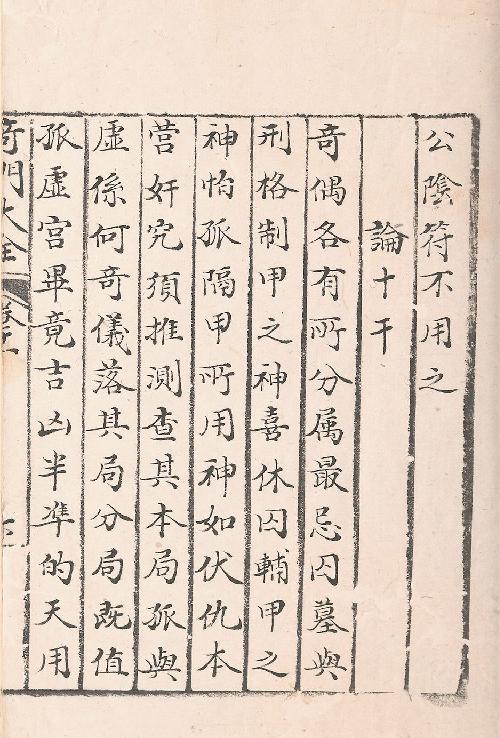 公陰符不用之
論十干
竒偶各有所分属最忌囚墓與
刑格制甲之神喜休囚輔甲之
神怕孤隔甲所用神如伏仇本
营奸究須推測查其本局孤與
虛係何竒儀落其局分局既值
孤虛宫畢竟吉凶半準的天用
竒門大全